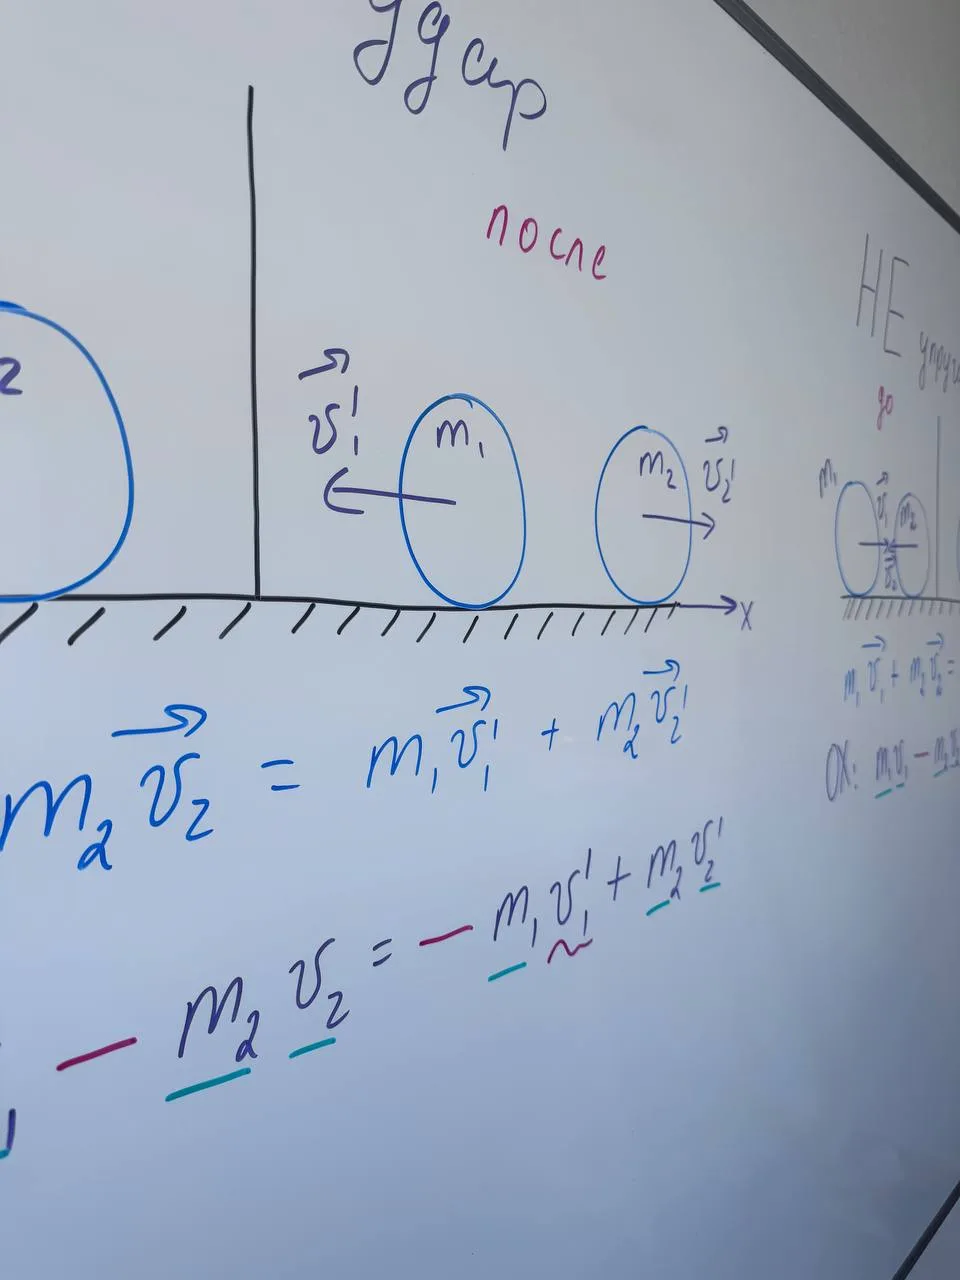 Удар
после
2
v⃗₁'
m₁
m₂
v⃗₂'
x
m₂v⃗₂ = m₁v⃗₁' + m₂v⃗₂'
− m₂v₂ = − m₁v₁' + m₂v₂'
НЕ
до
m₁
v⃗₁
m₂
v⃗₂
m₁v⃗₁ + m₂v⃗₂ =
OX: m₁v₁ − m₂v₂